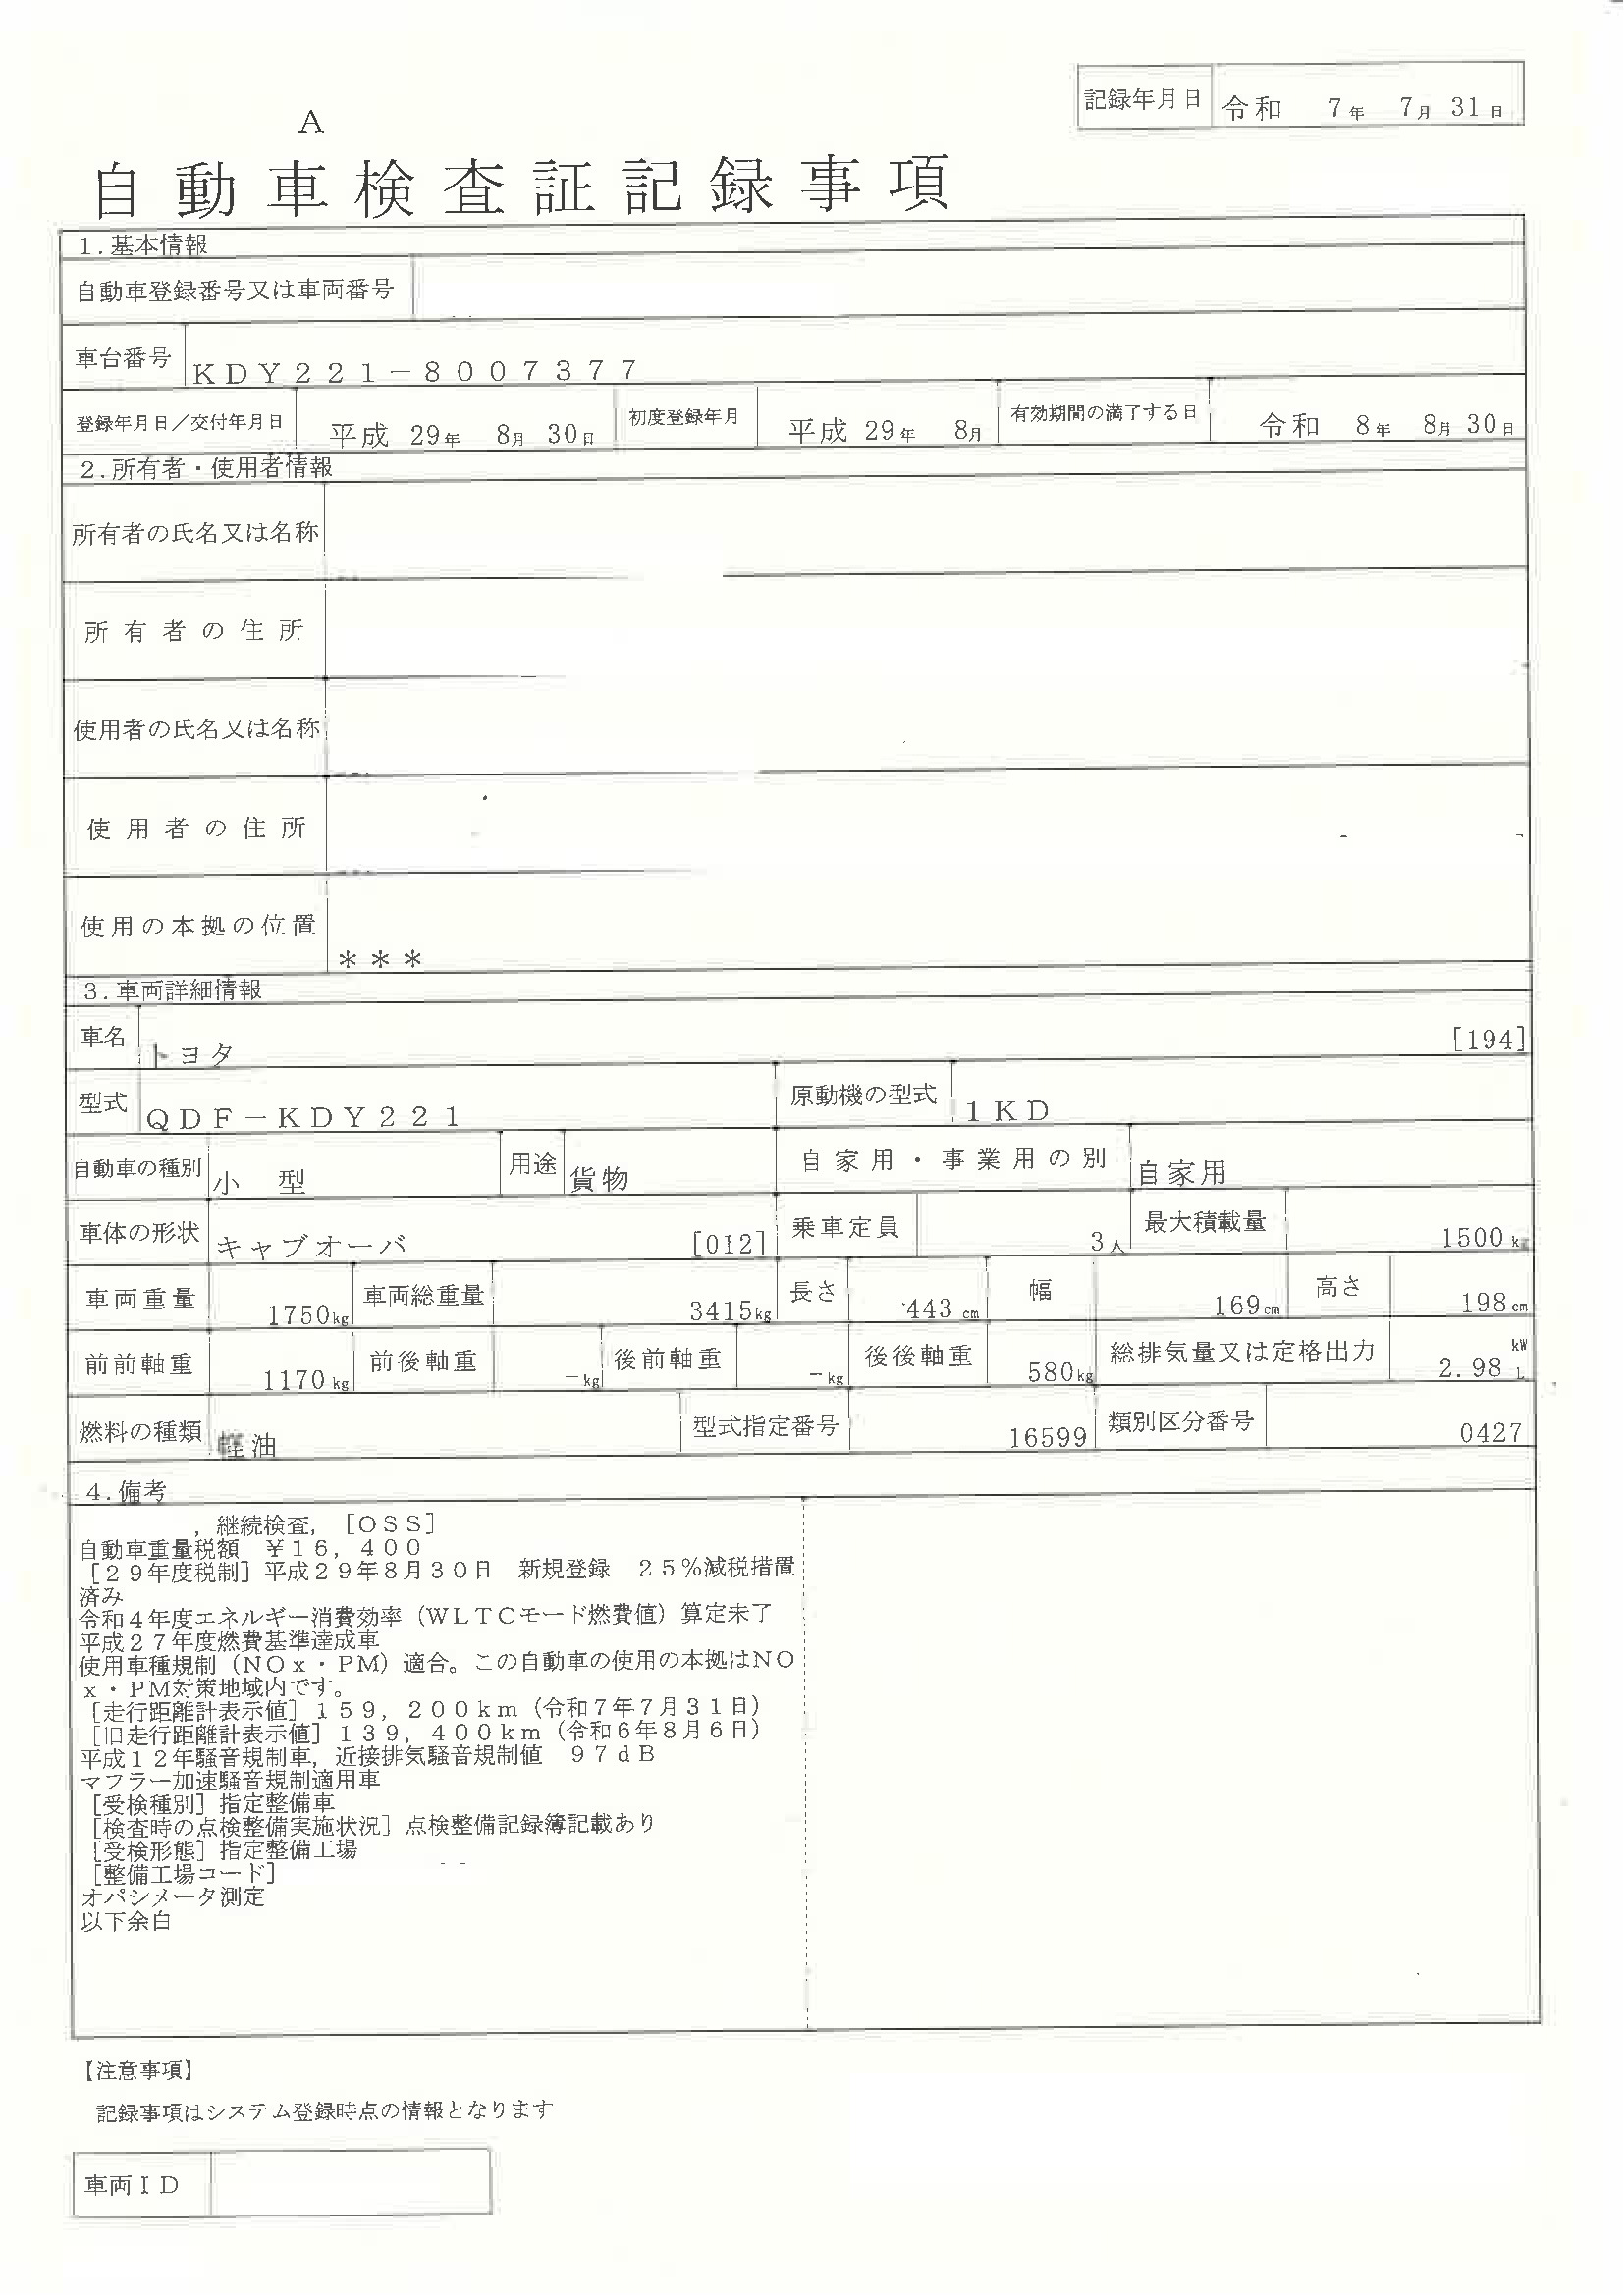 記録年月日 令和 7年 7月 31日
A
自動車検査証記録事項
1.基本情報
自動車登録番号又は車両番号
車台番号 KDY221-8007377
登録年月日/交付年月日 平成 29年 8月 30日 初度登録年月 平成 29年 8月 有効期間の満了する日 令和 8年 8月 30日
2.所有者・使用者情報
所有者の氏名又は名称
所有者の住所
使用者の氏名又は名称
使用者の住所
使用の本拠の位置 ***
3.車両詳細情報
車名 トヨタ [194]
型式 QDF-KDY221 原動機の型式 1KD
自動車の種別 小型 用途 貨物 自家用・事業用の別 自家用
車体の形状 キャブオーバ [012] 乗車定員 3人 最大積載量 1500kg
車両重量 1750kg 車両総重量 3415kg 長さ 443cm 幅 169cm 高さ 198cm
前前軸重 1170kg 前後軸重 -kg 後前軸重 -kg 後後軸重 580kg 総排気量又は定格出力 2.98 kW L
燃料の種類 軽油 型式指定番号 16599 類別区分番号 0427
4.備考
,継続検査,[OSS]
自動車重量税額 ¥16,400
[29年度税制]平成29年8月30日 新規登録 25%減税措置
済み
令和4年度エネルギー消費効率(WLTCモード燃費値)算定未了
平成27年度燃費基準達成車
使用車種規制(NOx・PM)適合。この自動車の使用の本拠はNO
x・PM対策地域内です。
[走行距離計表示値]159,200km(令和7年7月31日)
[旧走行距離計表示値]139,400km(令和6年8月6日)
平成12年騒音規制車,近接排気騒音規制値 97dB
マフラー加速騒音規制適用車
[受検種別]指定整備車
[検査時の点検整備実施状況]点検整備記録簿記載あり
[受検形態]指定整備工場
[整備工場コード]
オパシメータ測定
以下余白
【注意事項】
記録事項はシステム登録時点の情報となります
車両ID